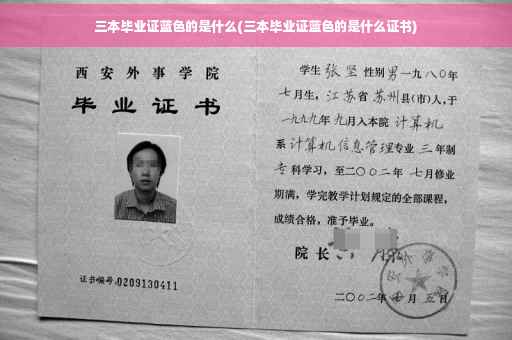 三本毕业证蓝色的是什么(三本毕业证蓝色的是什么证书)
西安外事学院
毕业证书
证书编号:0209130411
学生 张坚 性别 男 一九八〇年
七月生, 江苏省 苏州县(市)人,于
一九九九年 九月入本院 计算机
系 计算机信息管理专业 三 年制
专科学习,至二〇〇二年 七月修业
期满,学完教学计划规定的全部课程,
成绩合格,准予毕业。
院长
二〇〇二年 月 五日